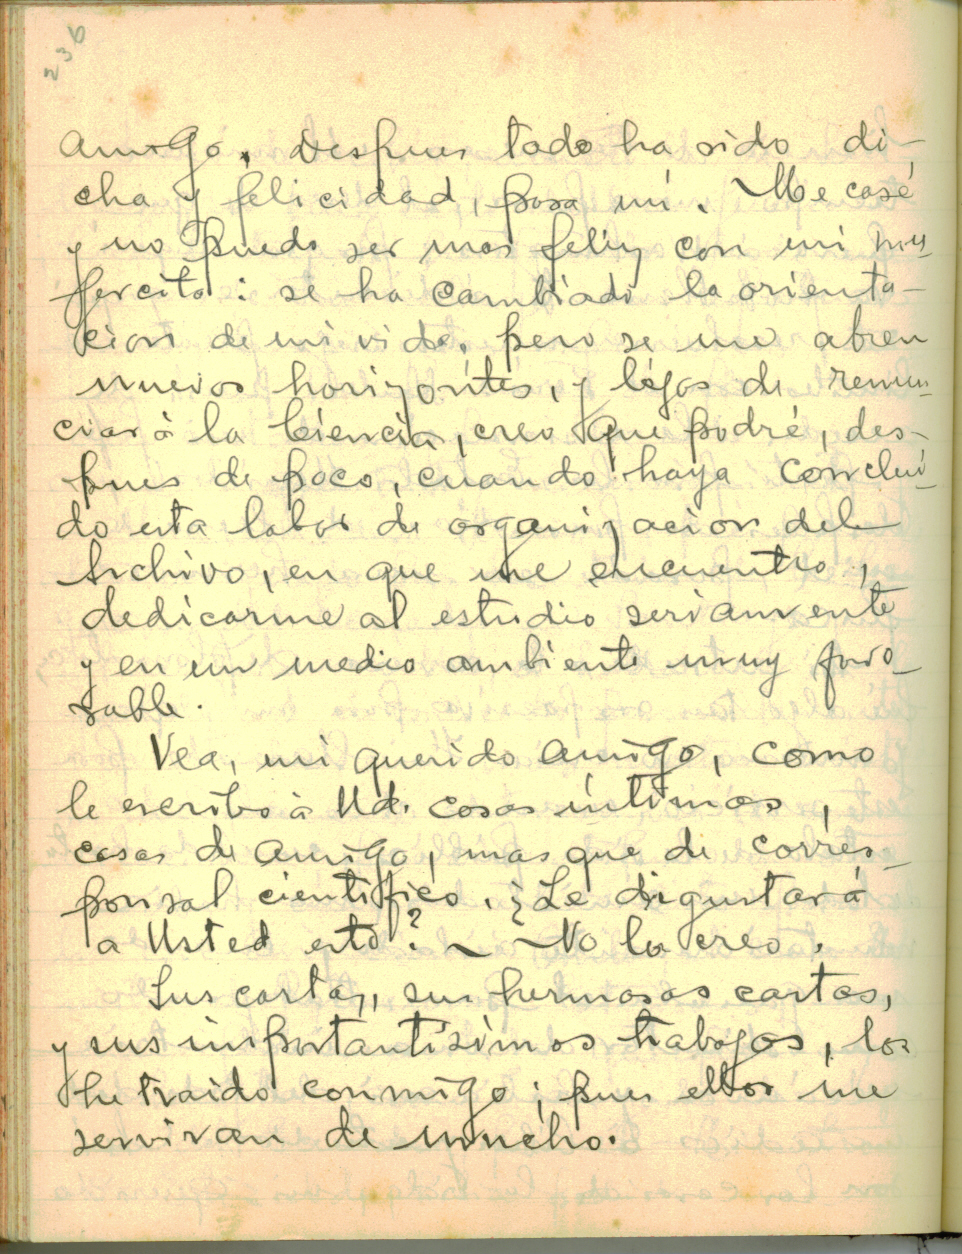 236
amigo. Despues todo ha sido di-
cha y felicidad, para mi. Me casé
y no puedo ser mas feliz con mi mu-
jercita: se ha cambiado la orienta-
cion de mi vida, pero se me abren
nuevos horizontes, y léjos de renun-
ciar à la Ciencia, creo que podré, des-
pues de poco, cuando haya conclui-
do esta labor de organizacion del
Archivo, en que me encuentro,
dedicarme al estudio seriamente
y en un medio ambiente muy favo-
rable.
Vea, mi querido amigo, como
le escribo à Ud. cosas íntimas,
cosas de amigo, mas que de corres-
ponsal cientifico. ¿Le disgustará
a Usted esto? - No lo creo.
Sus cartas, sus hermosas cartas,
y sus importantísimos trabajos, los
he traido conmigo; pues ellos me
serviran de mucho.